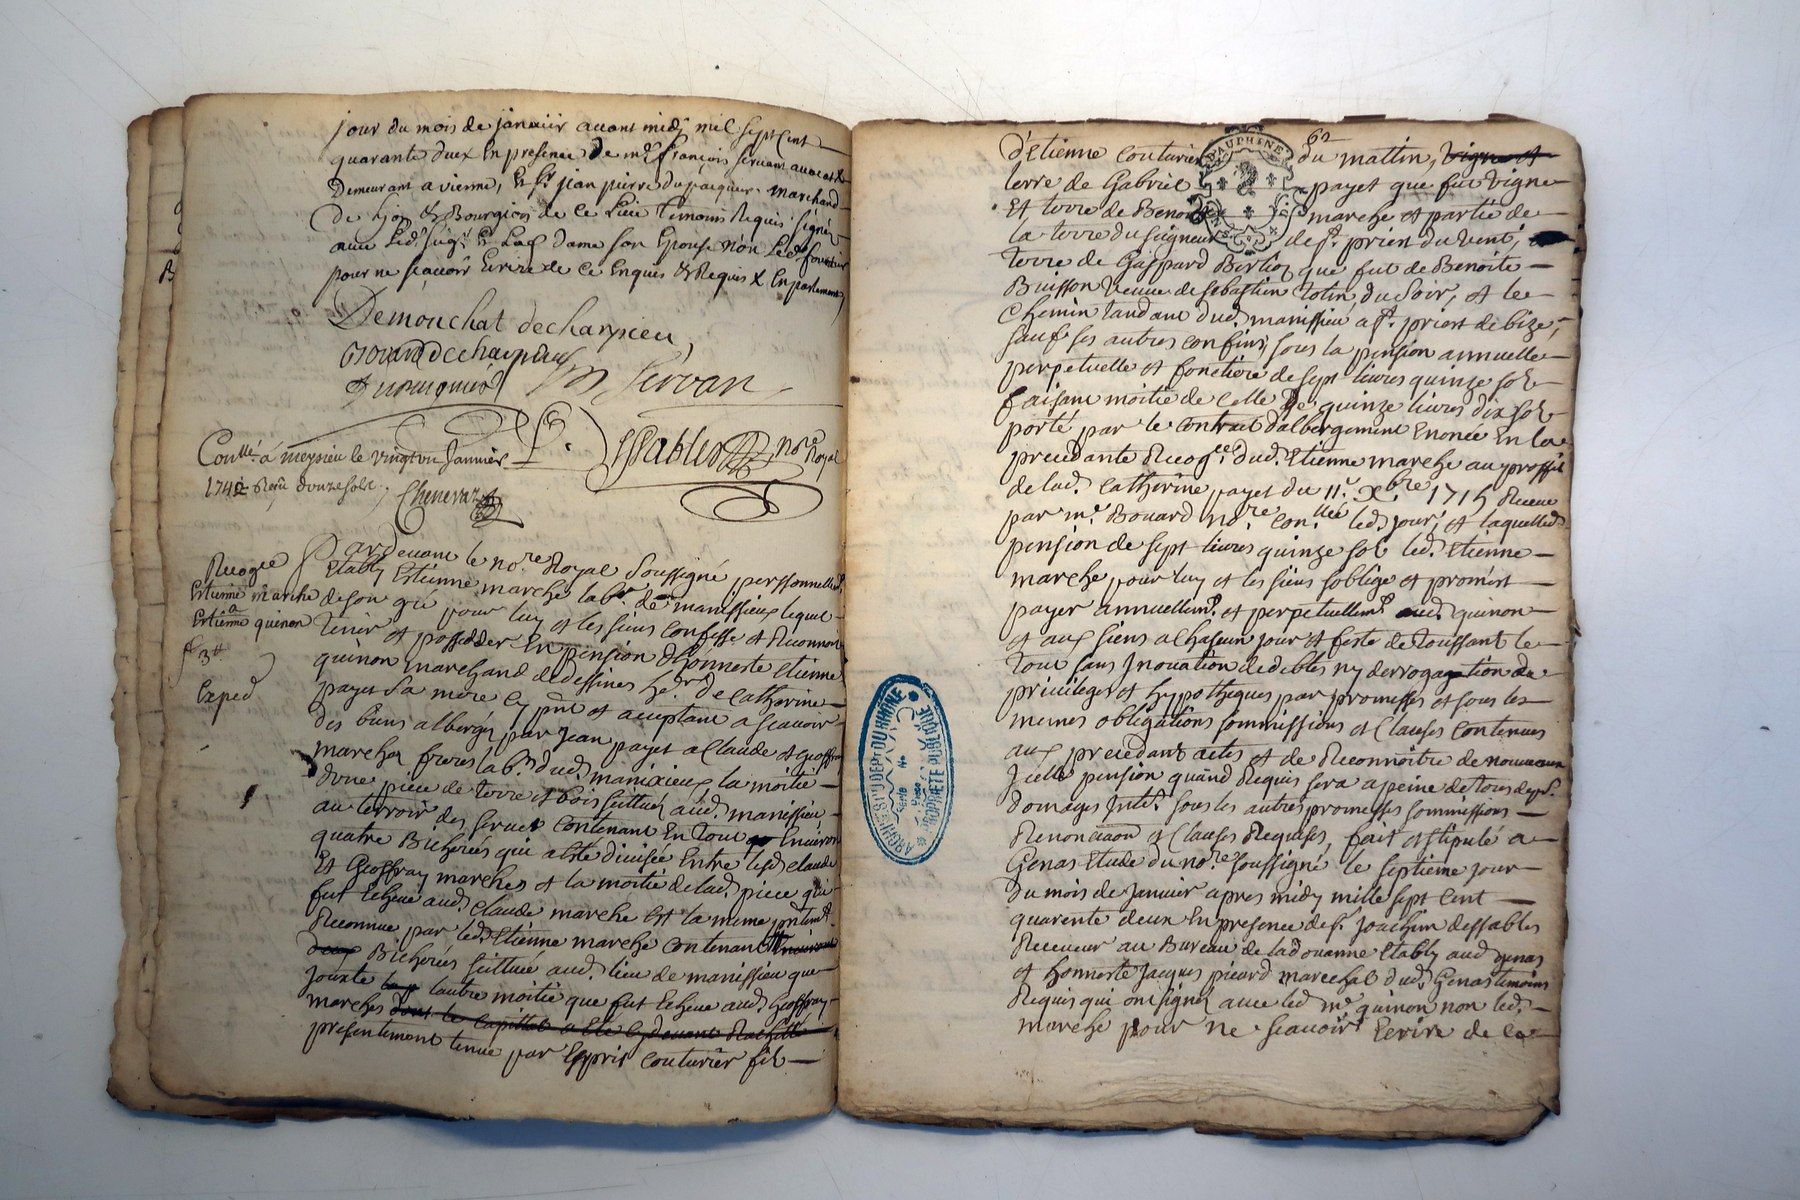 jour du mois de janvier avant midy mil sept cent
quarante deux En presence de mr. françois servan avocat
Demeurant a vienne, Et sr. jean pierre dupasquier marchand
De Lyon & Bourgeois de ce Lieu temoins Requis signés
avec Led. seigr. Et Lad. dame son Epouse non Led.
pour ne scavoir Ecrire de ce Enquis & Requis
Demouchat decharpieu
servan
nore. Royal
Conllé. á meysieu le vingt un Janvier
1742 Reçû douze sols
Chenevaz
Recoge
Estienne marche
a
Estienne quinon
Exped
Pardevant le nore. Royal soussigné personnellemt.
Etably Estienne marche labr. de manissieux lequel
de son gré pour luy et les siens confesse et Reconnoit
tenir et posseder En pension d'honneste Etienne
quinon marchand de dessines her. de Catherine
payet sa mere cy pnt et aceptant a scavoir
des biens albergés par Jean payet a Claude et Geoffray
marches freres labrs. dud. manissieux, la moitié
dune piece de terre et bois scittuée aud. manissieu
au terroir des serves contenant En tout Environ
quatre Bicherées qui a été divisée Entre lesd. claude
Et Geoffray marches et la moitié de lad. piece qui
fut Echeue aud. Claude marche est la meme
Reconnue par led. Etienne marche contenant Environ
deux Bicherées scittuée aud. lieu de manissieu que
jouxte lautre moitié que fut Echeue aud. Geoffray
marches dont le Capittal a été
presentement tenue par Esprit couturier fils
62
DAUPHINE
d'Etienne couturier du mattin, vigne et
terre de Gabriel payet que fut vigne
Et terre de Benoit marche et partie de
la terre du seigneur de st. prien du vent,
terre de Gaspard Berlioz que fut de Benoite
Buisson veuve de sebastien Cotin du soir, et le
Chemin tandant dud. manissieu a st. priest de bize,
sauf ses autres confins, sous la pension annuelle
perpetuelle et fonciere de sept livres quinze sols
faisant moitié de celle de quinze livres dix sols
porté par le contrat dalbergement Enoncé En la
precedante Recogce. dud. Etienne marche au proffit
de lad. Catherine payet du 11e. Xbre 1715 Receu
par me. Bouard nore. conllé led. jour, et laquelle
pension de sept livres quinze sols led. Etienne
marche pour luy et les siens soblige et promet
payer annuellemt. et perpetuellemt. aud. quinon
et aux siens a chascun jour et feste de toussant le
tout sans Inovation dedibles ny derrogation de
privileges et hyppotheques par promesses et sous les
memes obligations sommissions et Clauses contenues
aux precedant actes et de Reconnoitre de nouveau
Jcelle pension quand Requis sera a peine de tous deps.
domages Intts. sous les autres promesses sommissions
Renonciaon et Clauses Requises, fait et stipulé a
Genas Etude du nore. soussigné le septieme jour
du mois de Janvier apres midy mille sept cent
quarente deux En presence de sr. Joachim dessables
Receveur au Bureau de la doanne Etably aud. Genas
et honneste Jacques picard marechal dud. Genas temoins
Requis qui ont signé avec led. me. quinon non led.
marche pour ne scavoir Ecrire de ce
ARCHIVES DU DEPT DU RHÔNE
PROPRIETE PUBLIQUE